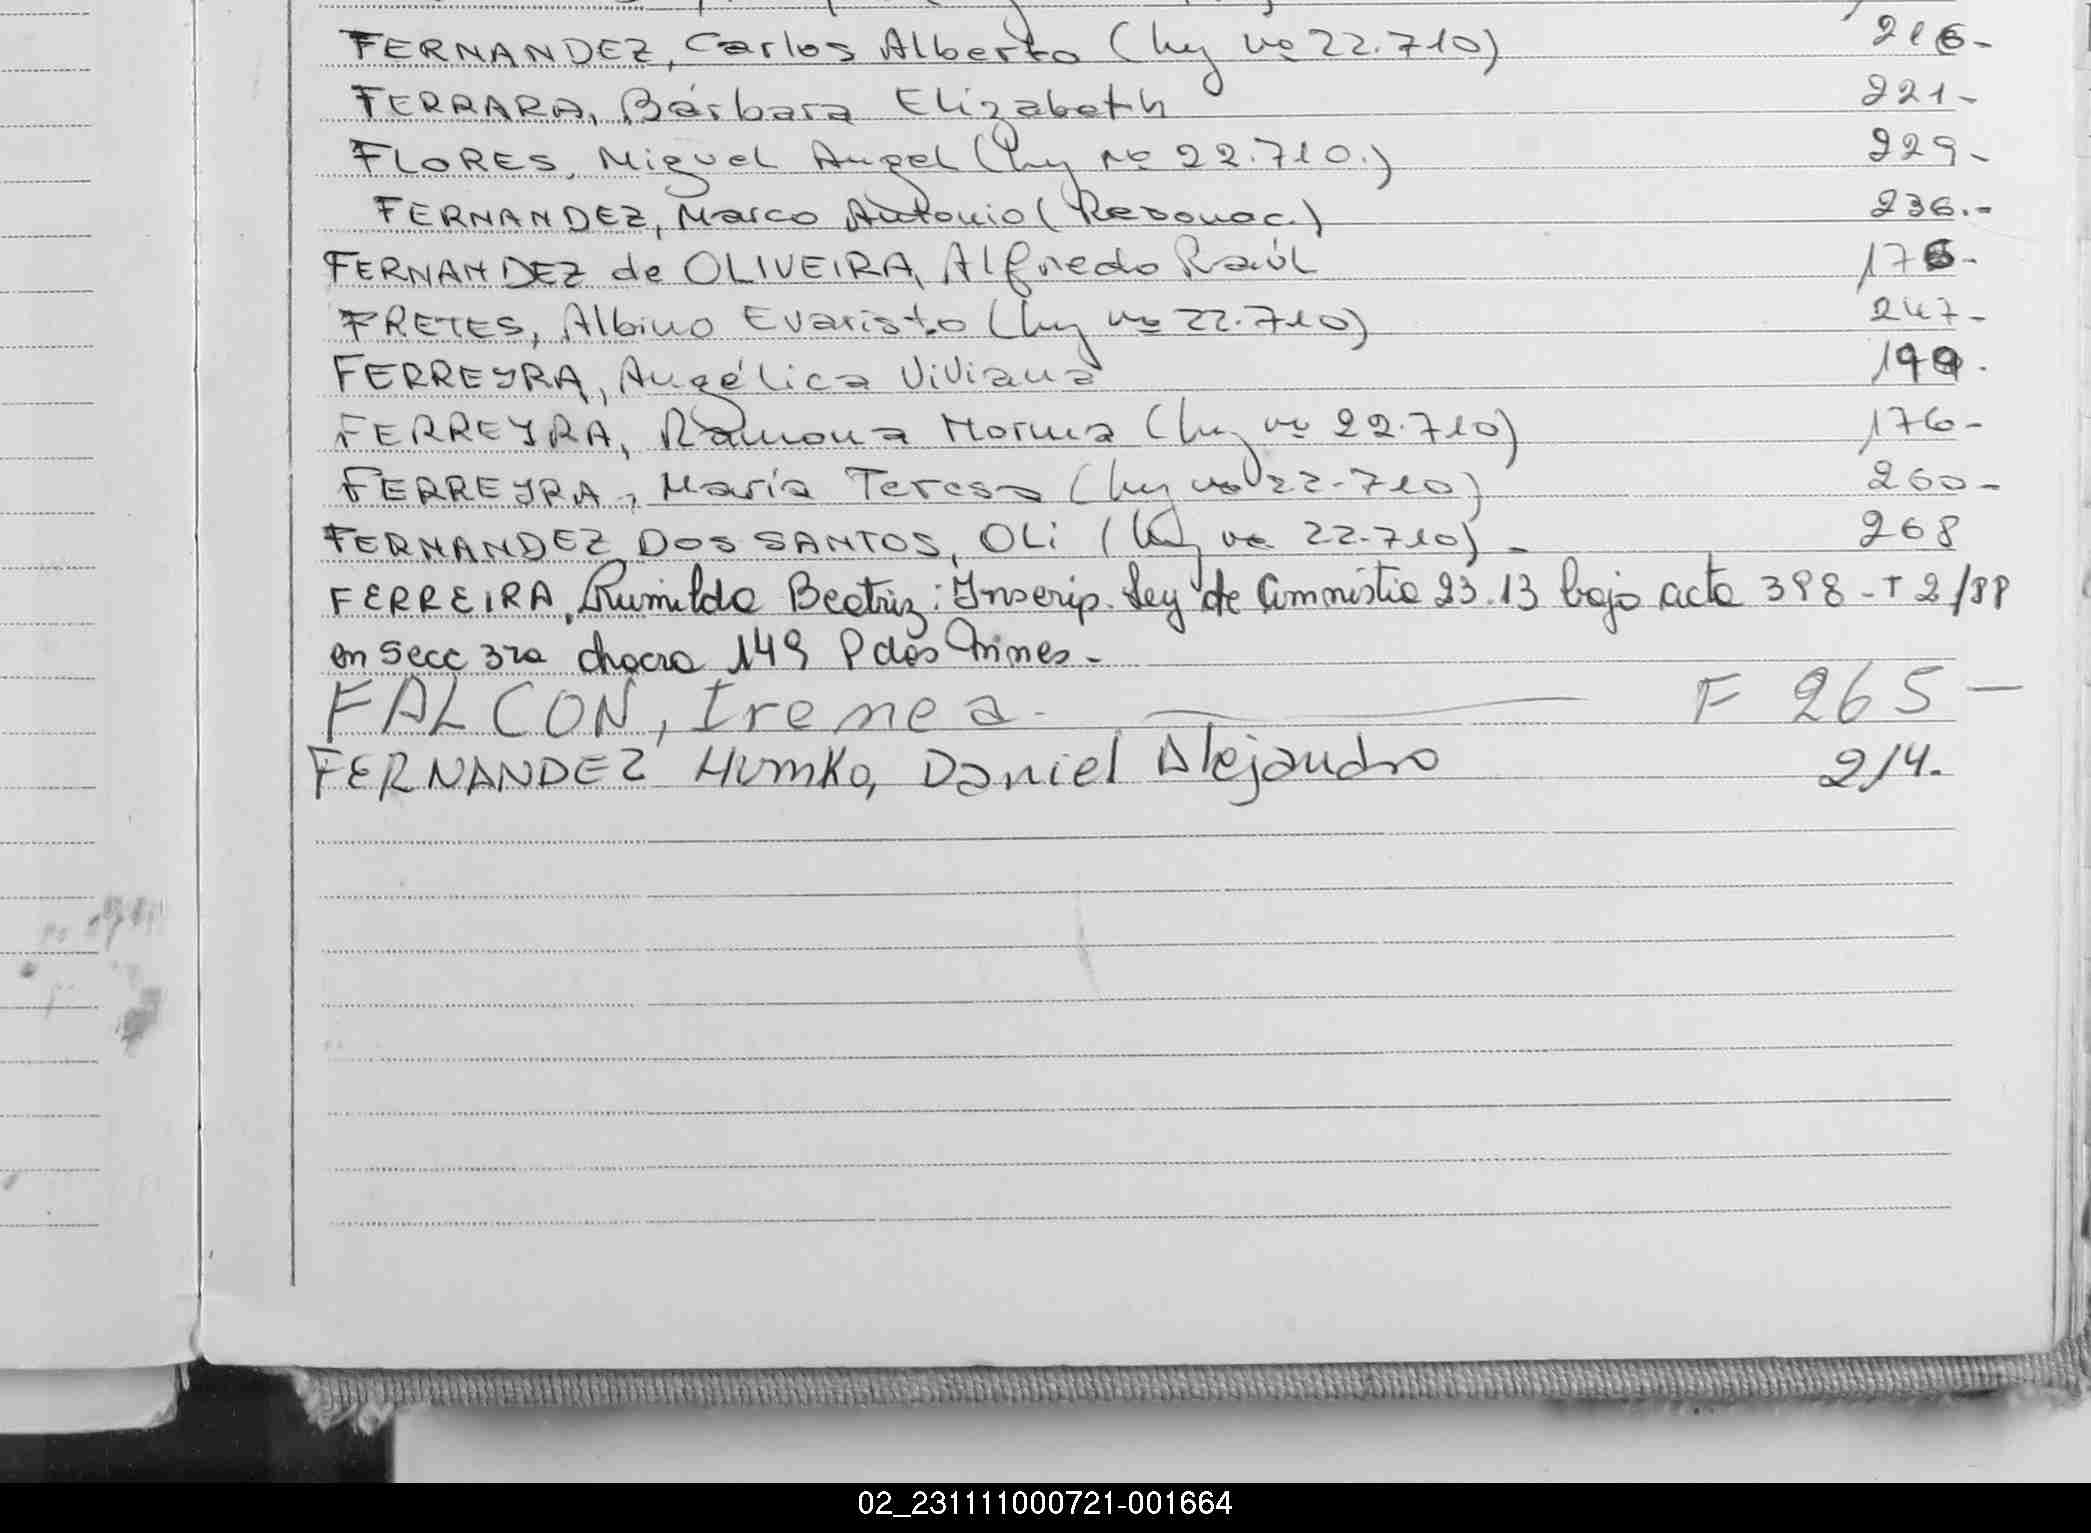 FERNANDEZ, Carlos Alberto (ley nº 22.710) 216-
FERRARA, Bárbara Elizabeth 221-
FLORES, Miguel Angel (ley nº 22.710.) 229-
FERNANDEZ, Marco Antonio (Reconoc.) 236.-
FERNANDEZ de OLIVEIRA, Alfredo Raúl 176-
FRETES, Albino Evaristo (ley nº 22.710) 247-
FERREYRA, Angélica Viviana 199.
FERREYRA, Ramona Norma (ley nº 22.710) 176-
FERREYRA, María Teresa (ley nº 22.710) 260-
FERNANDEZ DOS SANTOS, OLi (ley nº 22.710) - 268
FERREIRA, Rumilda Beatriz: Inscrip. Ley de Amnistia 23.13 bajo acta 398 - T 2/88
en Secc 3ra chacra 149 Pdas Mnes.-
FALCON, Irenea - F 265 -
FERNANDEZ HumKo, Daniel Alejandro 214.
02_231111000721-001664